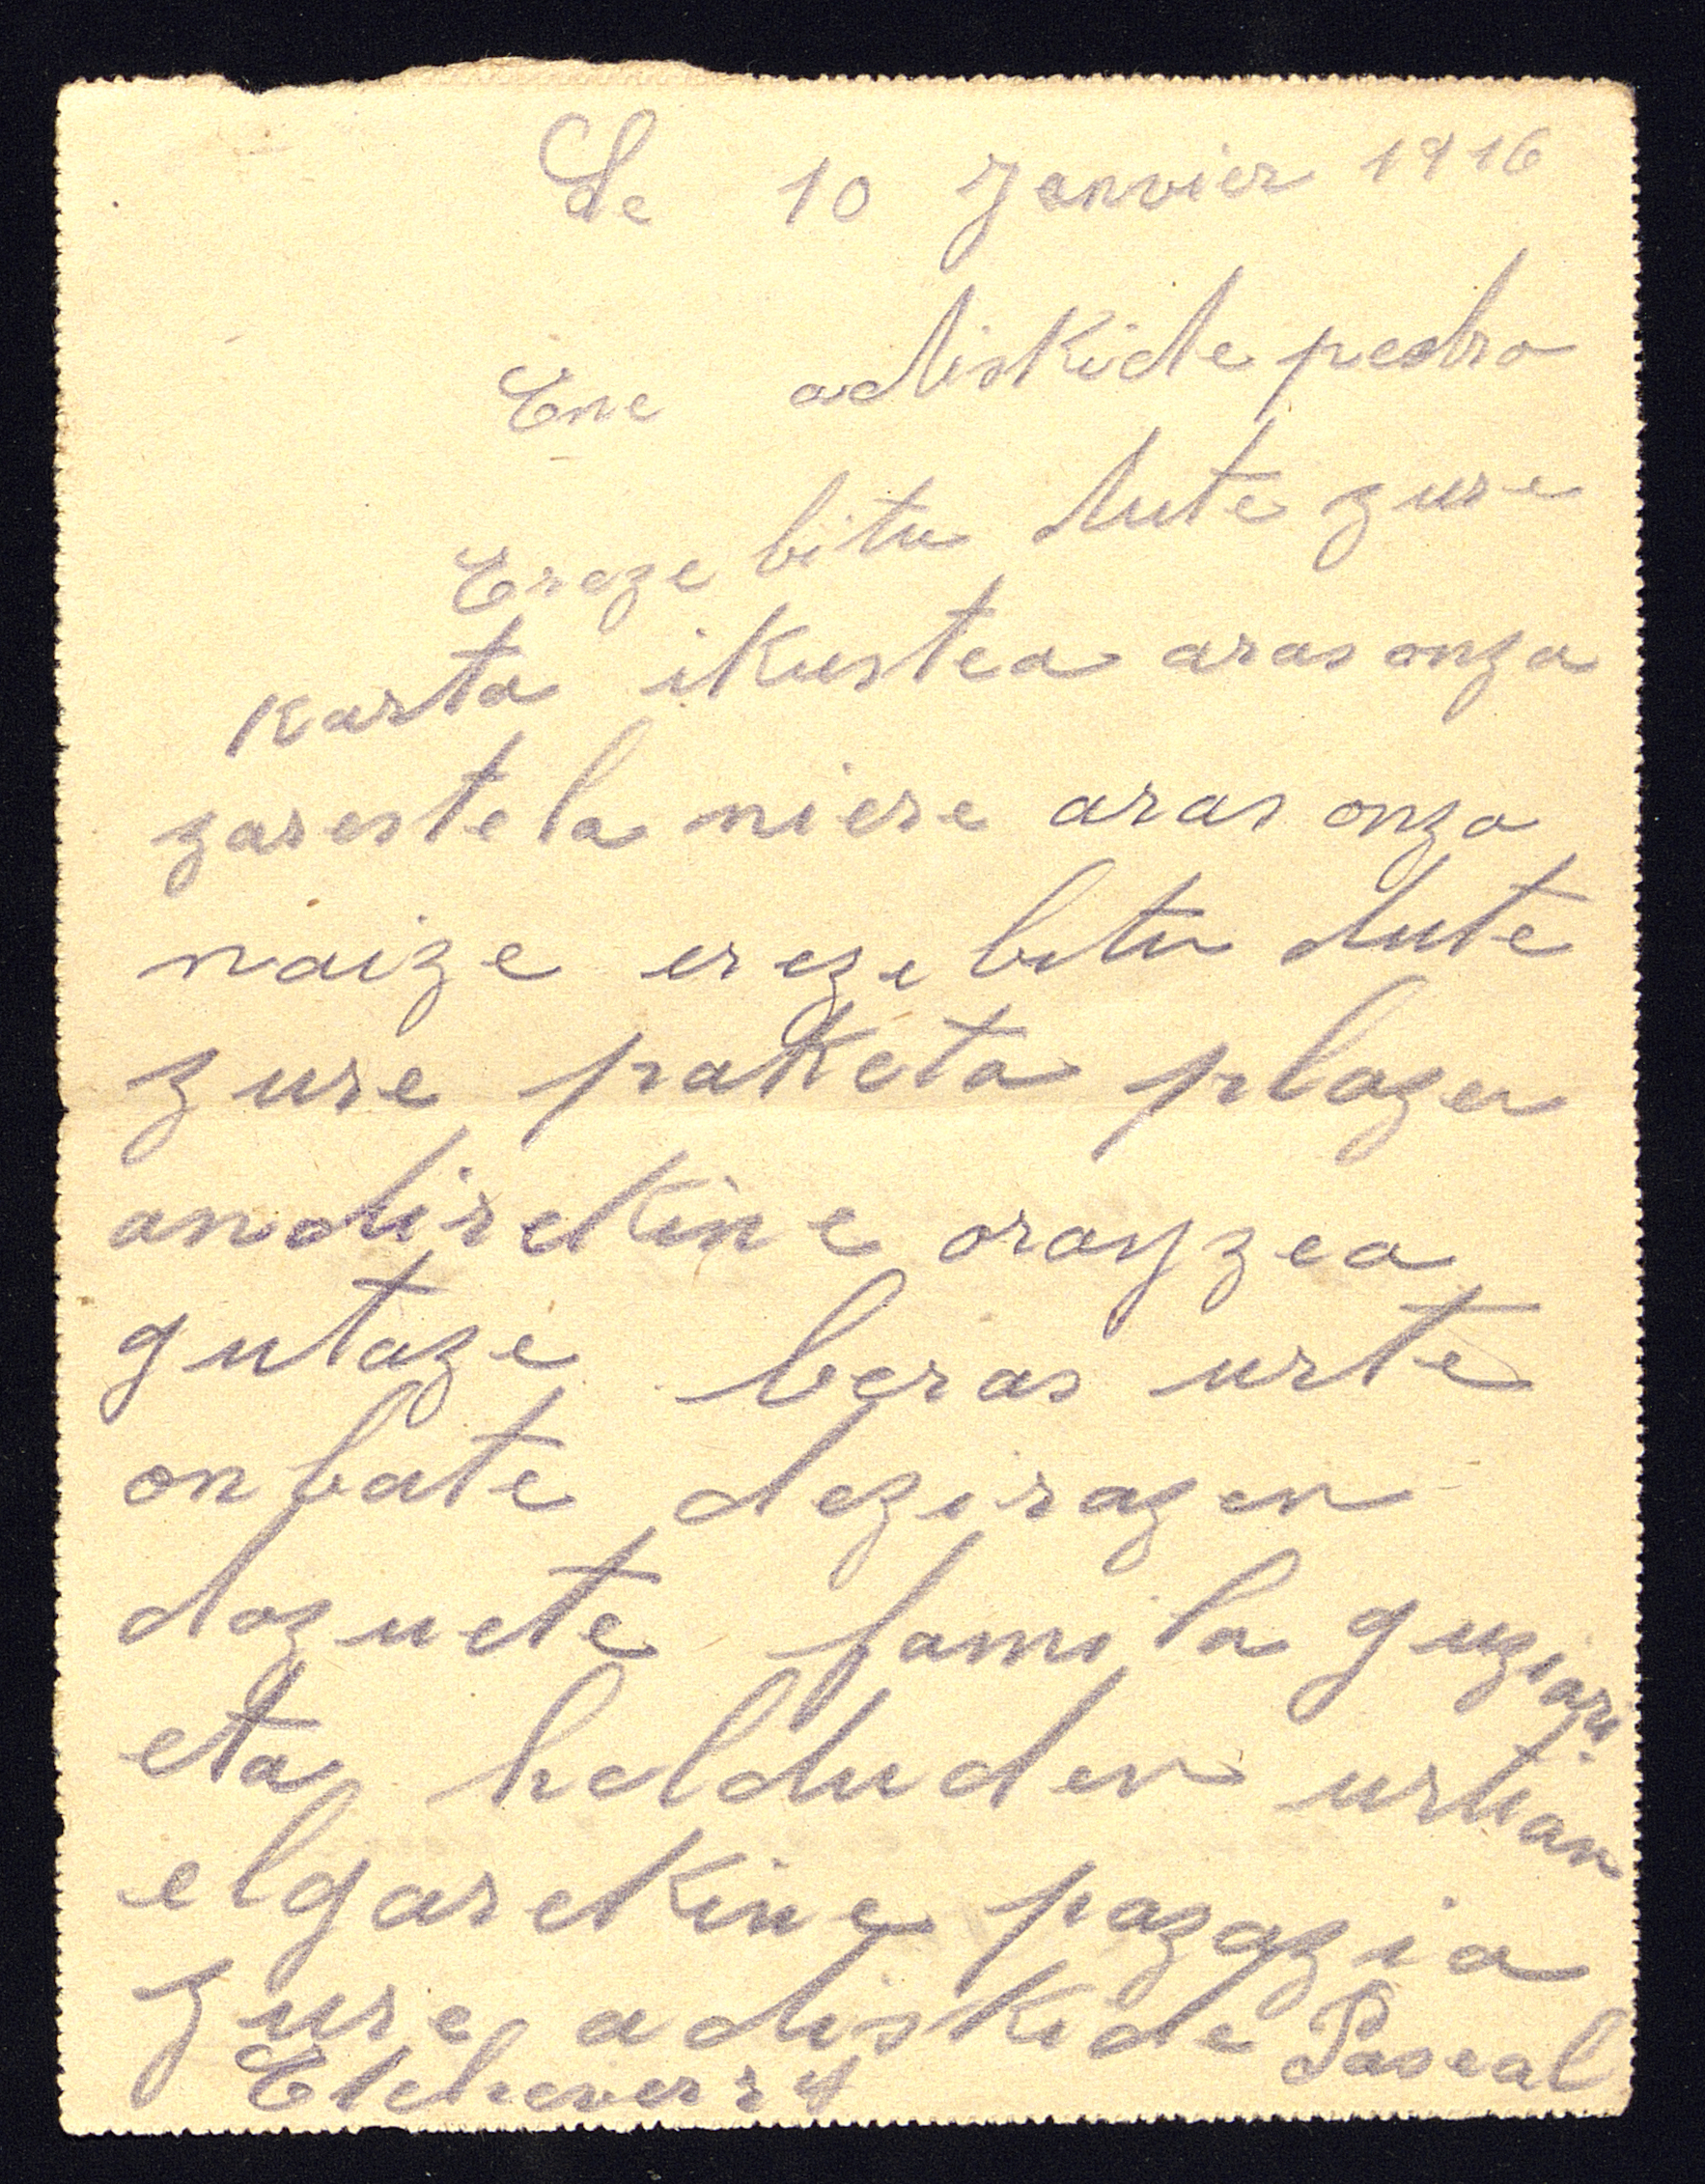 Le 10 Janvier 1916
Ene adiskide pedro
Ereze bitu dute zure
karta ikustea aras onza
zarestela niere aras onza
naize ereze bitu dute
zure paketa plazer
andirekine orayzea
gutaze beras urte
on bate dezirazen
dazuete famila guziari
eta heldu den urtian
elgarekine pazazia
zure adiskide Pascal
Etcheverry